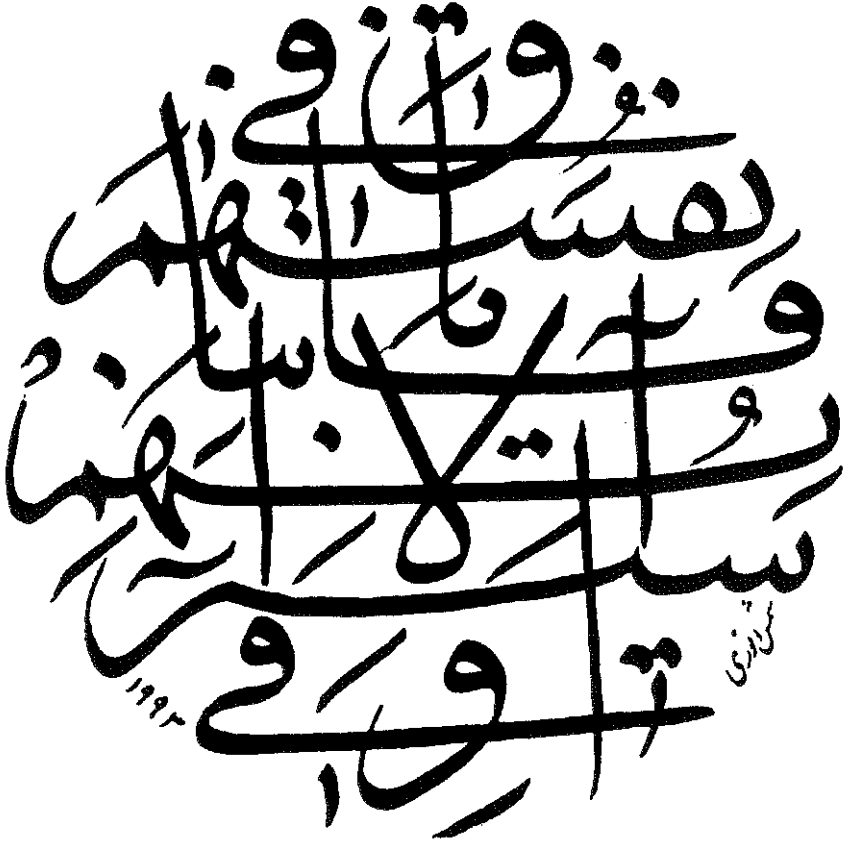 سَنُرِيهِمْ آيَاتِنَا فِي الْآفَاقِ وَفِي أَنفُسِهِمْ
١٩٩٣